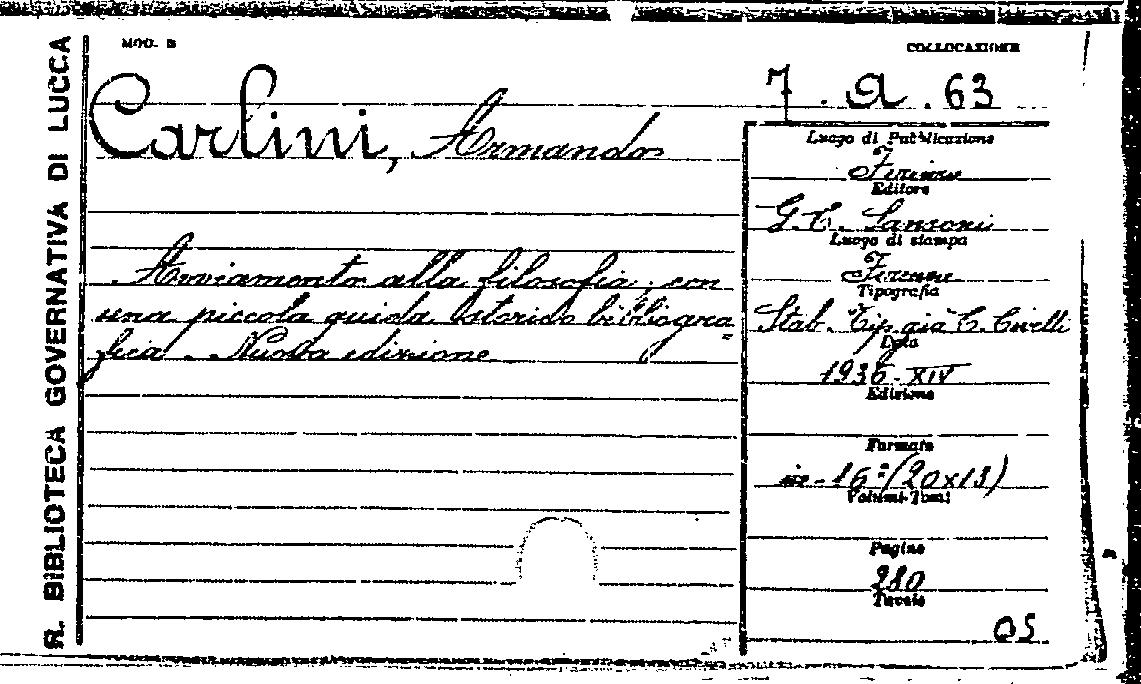 R. BIBLIOTECA GOVERNATIVA DI LUCCA
MOD. B
COLLOCAZIONE
7. A. 63
Carlini, Armando
Avviamento alla filosofia, con
una piccola guida storico bibliogra
fica. Nuova edizione
Luogo di Pubblicazione
Firenze
Editore
G. C. Sansoni
Luogo di stampa
Firenze
Tipografia
Stab. Tip. già C. Civelli
Data
1936-XIV
Edizione
Formato
in-16º (20x13)
Volumi-Tomi
Pagine
280
Tavole
05